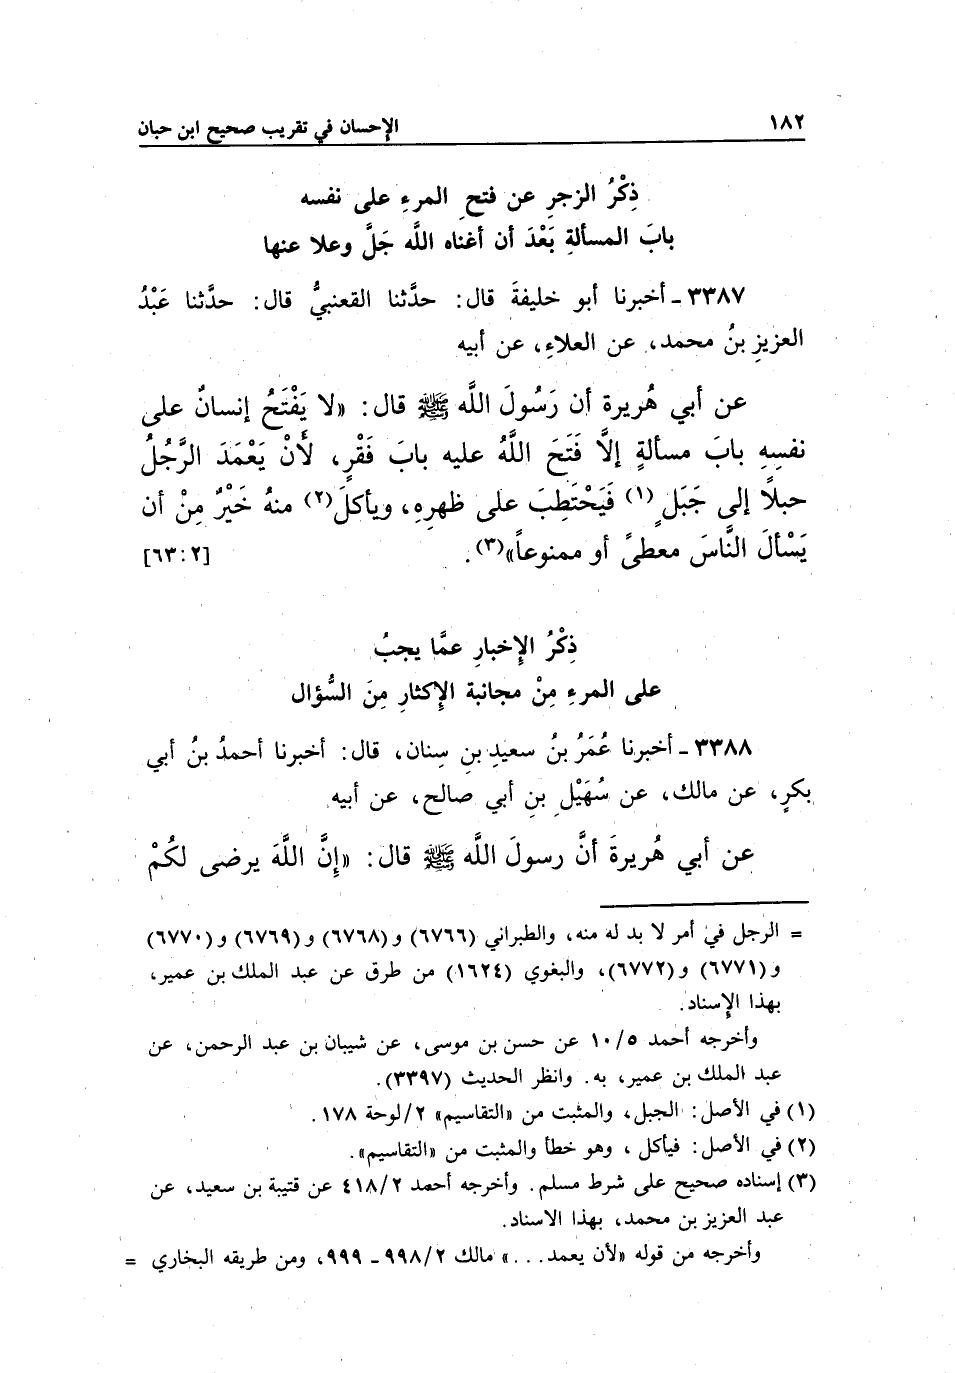 ١٨٢ الإحسان في تقريب صحيح ابن حبان
ذِكْرُ الزجرِ عن فتحِ المرءِ على نفسه
بابَ المسألةِ بَعْدَ أن أغناه اللَّه جَلَّ وعلا عنها
٣٣٨٧ - أخبرنا أبو خليفةَ قال: حدَّثنا القعنبيُّ قال: حدَّثنا عَبْدُ
العزيزِ بنُ محمد، عن العلاءِ، عن أبيه
عن أبي هُريرة أن رَسُولَ اللَّه ﷺ قال: «لا يَفْتَحُ إنسانٌ على
نفسِهِ بابَ مسألةٍ إلَّا فَتَحَ اللَّهُ عليه بابَ فَقْرٍ، لَأَنْ يَعْمَدَ الرَّجُلُ
حبلًا إلى جَبَلٍ(١) فَيَحْتَطِبَ على ظهرِهِ، ويأكلَ(٢) منهُ خَيْرٌ مِنْ أن
يَسْأَلَ النَّاسَ معطىً أو ممنوعاً»(٣). [٢:٦٣]
ذِكْرُ الإِخبارِ عمَّا يجبُ
على المرءِ مِنْ مجانبة الإِكثارِ مِنَ السُّؤال
٣٣٨٨ - أخبرنا عُمَرُ بنُ سعيدِ بنِ سِنان، قال: أخبرنا أحمدُ بنُ أبي
بكرٍ، عن مالك، عن سُهَيْلِ بنِ أبي صالح، عن أبيه
عن أبي هُريرةَ أنَّ رسولَ اللَّه ﷺ قال: «إنَّ اللَّهَ يرضى لكُمْ
= الرجل في أمر لا بد له منه، والطبراني (٦٧٦٦) و(٦٧٦٨) و(٦٧٦٩) و(٦٧٧٠)
و(٦٧٧١) و(٦٧٧٢)، والبغوي (١٦٢٤) من طرق عن عبد الملك بن عمير،
بهذا الإسناد.
وأخرجه أحمد ١٠/٥ عن حسن بن موسى، عن شيبان بن عبد الرحمن، عن
عبد الملك بن عمير، به. وانظر الحديث (٣٣٩٧).
(١) في الأصل: الجبل، والمثبت من «التقاسيم» ٢/لوحة ١٧٨.
(٢) في الأصل: فيأكل، وهو خطأ والمثبت من «التقاسيم».
(٣) إسناده صحيح على شرط مسلم. وأخرجه أحمد ٤١٨/٢ عن قتيبة بن سعيد، عن
عبد العزيز بن محمد، بهذا الاسناد.
وأخرجه من قوله «لأن يعمد...» مالك ٩٩٨/٢ - ٩٩٩، ومن طريقه البخاري =